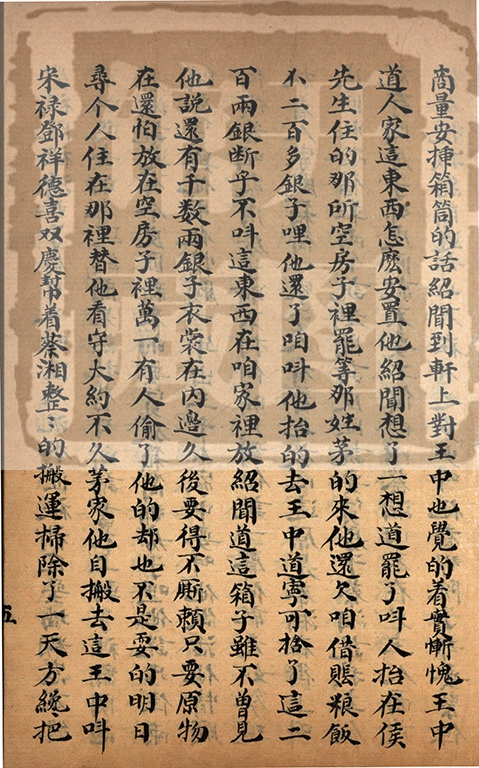 商量安揷箱筒的話紹聞到軒上對王中也覺的着實慚愧王中
道人家這東西怎麽安置他紹聞想了一想道罷了呌人抬在侯
先生住的那所空房子裡罷等那姓茅的來他還欠咱借賬粮飯
不二百多銀子哩他還了咱呌他抬的去王中道寧可捨了這二
百兩銀断乎不呌這東西在咱家裡放紹聞道這箱子雖不曾見
他説還有千数兩銀子衣裳在内邉久後要得不厮賴只要原物
在還怕放在空房子裡萬一有人偷了他的却也不是耍的明日
尋个人住在那裡替他看守大約不久茅家他自搬去這王中呌
宋禄鄧祥德喜双慶幫着蔡湘整〻的搬運掃除了一天方纔把
五